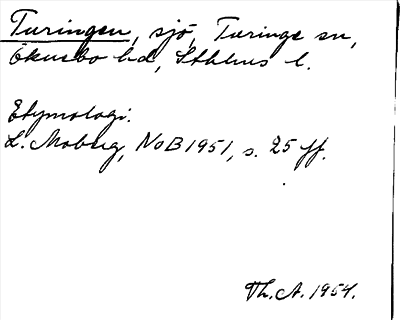 Turingen, sjö, Turinge sn,
Öknebo hd, Sthlms l.
Etymologi.
L. Moberg, NoB 1951, s. 25 ff.
Th. A. 1954.